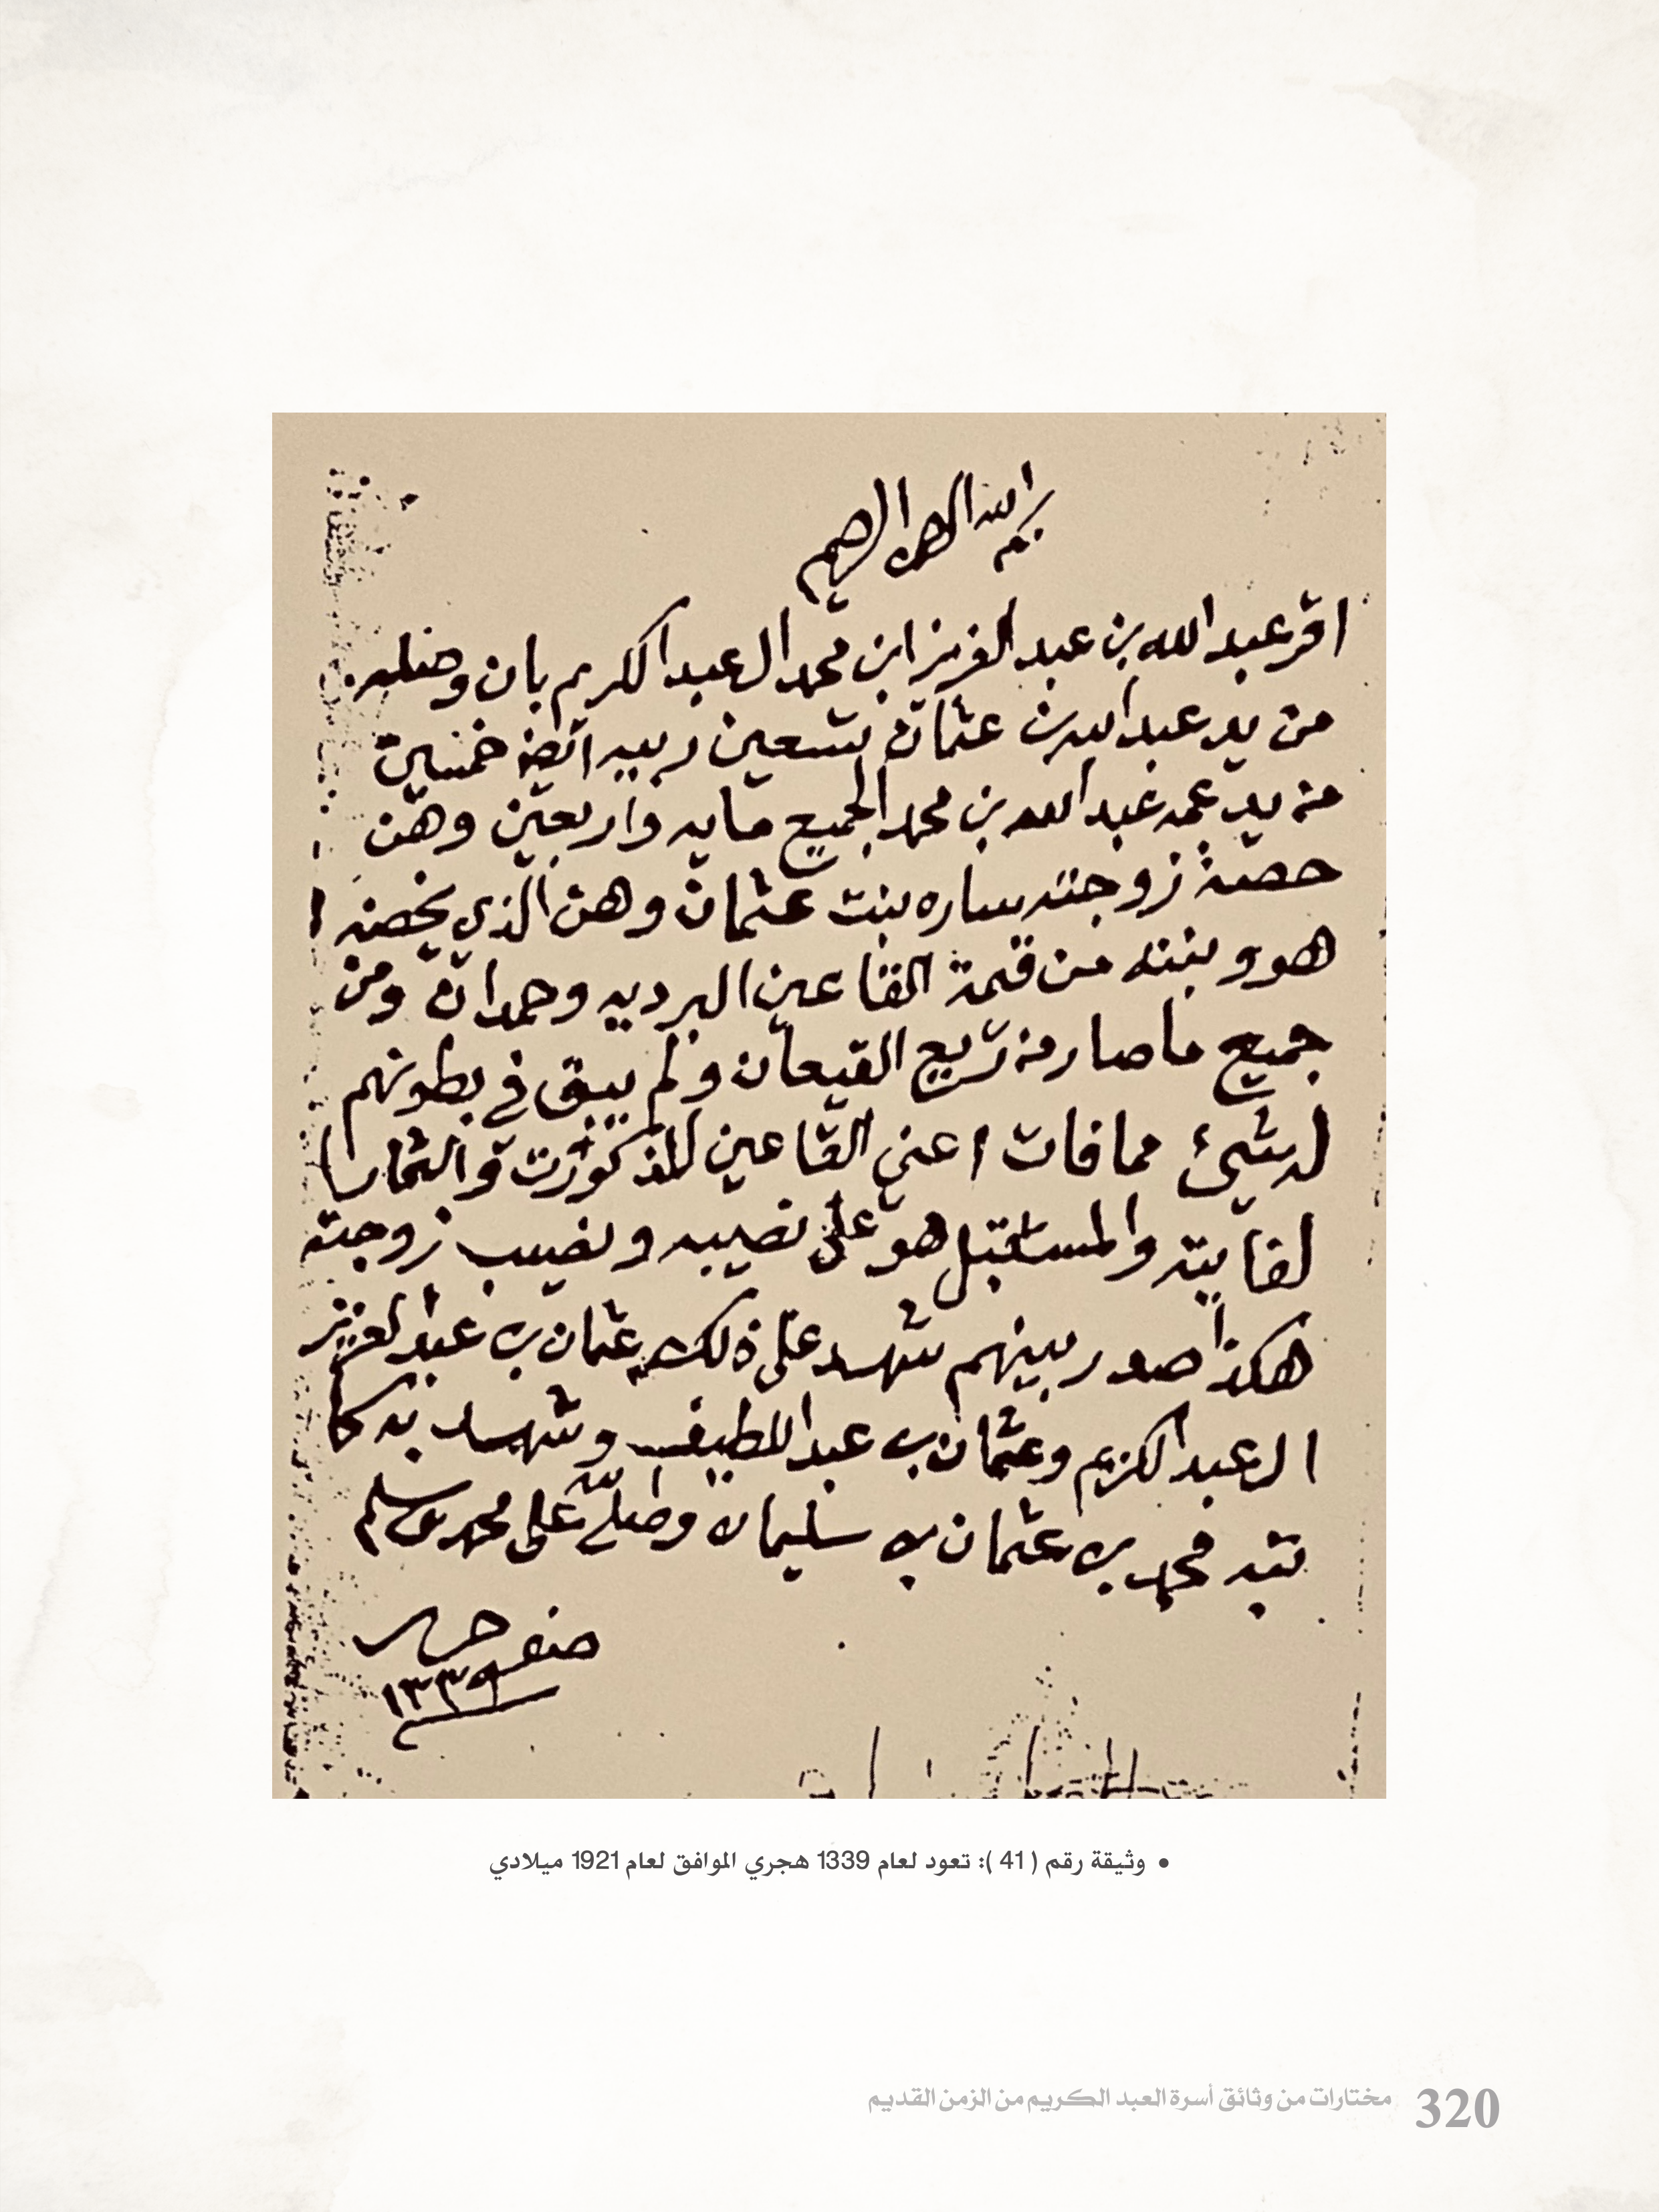 بسم الله الرحمن الرحيم
اقر عبد الله بن عبد العزيز ابن محمد ال عبد الكريم بان وصله
من يد عبد الله بن عثمان تسعين ربيه ايضا خمسين
من يد عمه عبد الله بن محمد الجميع مايه واربعين وهن
حصة زوجته ساره بنت عثمان وهن الذي يخصنه
هو وبنته من قيمة القاعين البرديه وحمدانه ومن
جميع ما صار من تربيع القيعان ولم يبق في بطونهم
له شيئ مما فات اعني القاعين المذكورت والثمارا
لفايته والمستقبل هو على نصيبه ونصيب زوجته
هكذا صدر بينهم شهد على ذلك عثمان بن عبد العزيز
ال عبد الكريم وعثمان بن عبد اللطيف وشهد به كا
تبه محمد بن عثمان بن سليمان وصلى الله على محمد وسلم
صفر
١٣٣٩
• وثيقة رقم ( 41 ): تعود لعام 1339 هجري الموافق لعام 1921 ميلادي
320 مختارات من وثائق أسرة العبد الكريم من الزمن القديم